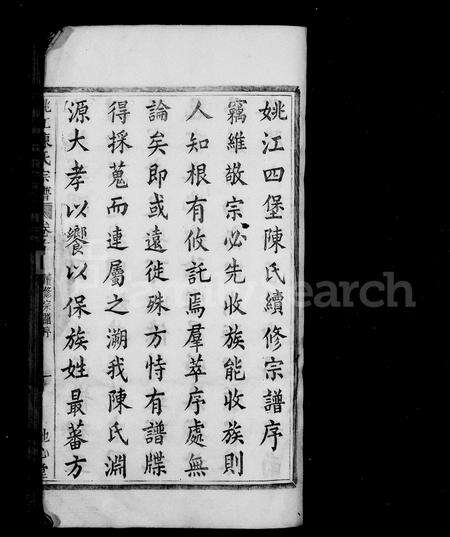 姚江四堡陳氏續修宗譜序
竊維敬宗必先收族能收族則
人知根有攸託焉羣萃序處無
論矣即或遠徙殊方恃有譜牒
得採蒐而連屬之溯我陳氏淵
源大孝以饗以保族姓最蕃方
姚江陳氏宗譜
FamilySearch